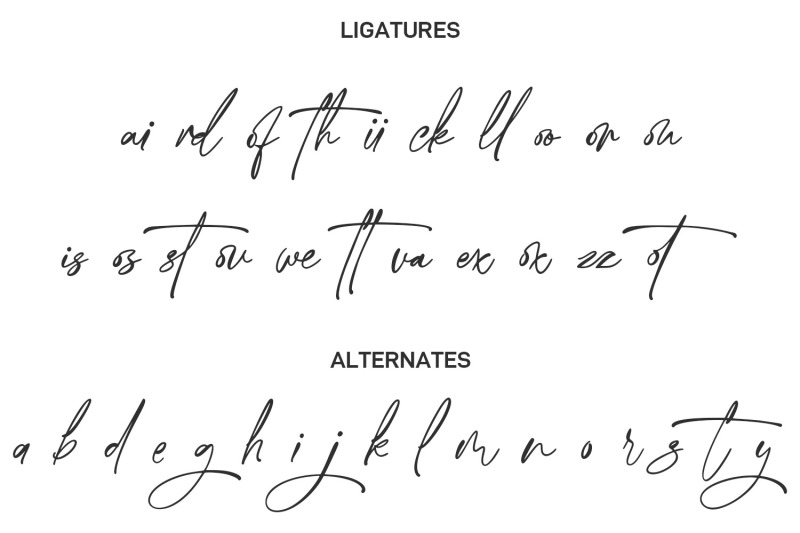 LIGATURES
ai rd of th ii ck ll oo or on
is os st ov we tt va ex ox zz ot
ALTERNATES
a b d e g h i j k l m n o r s t y